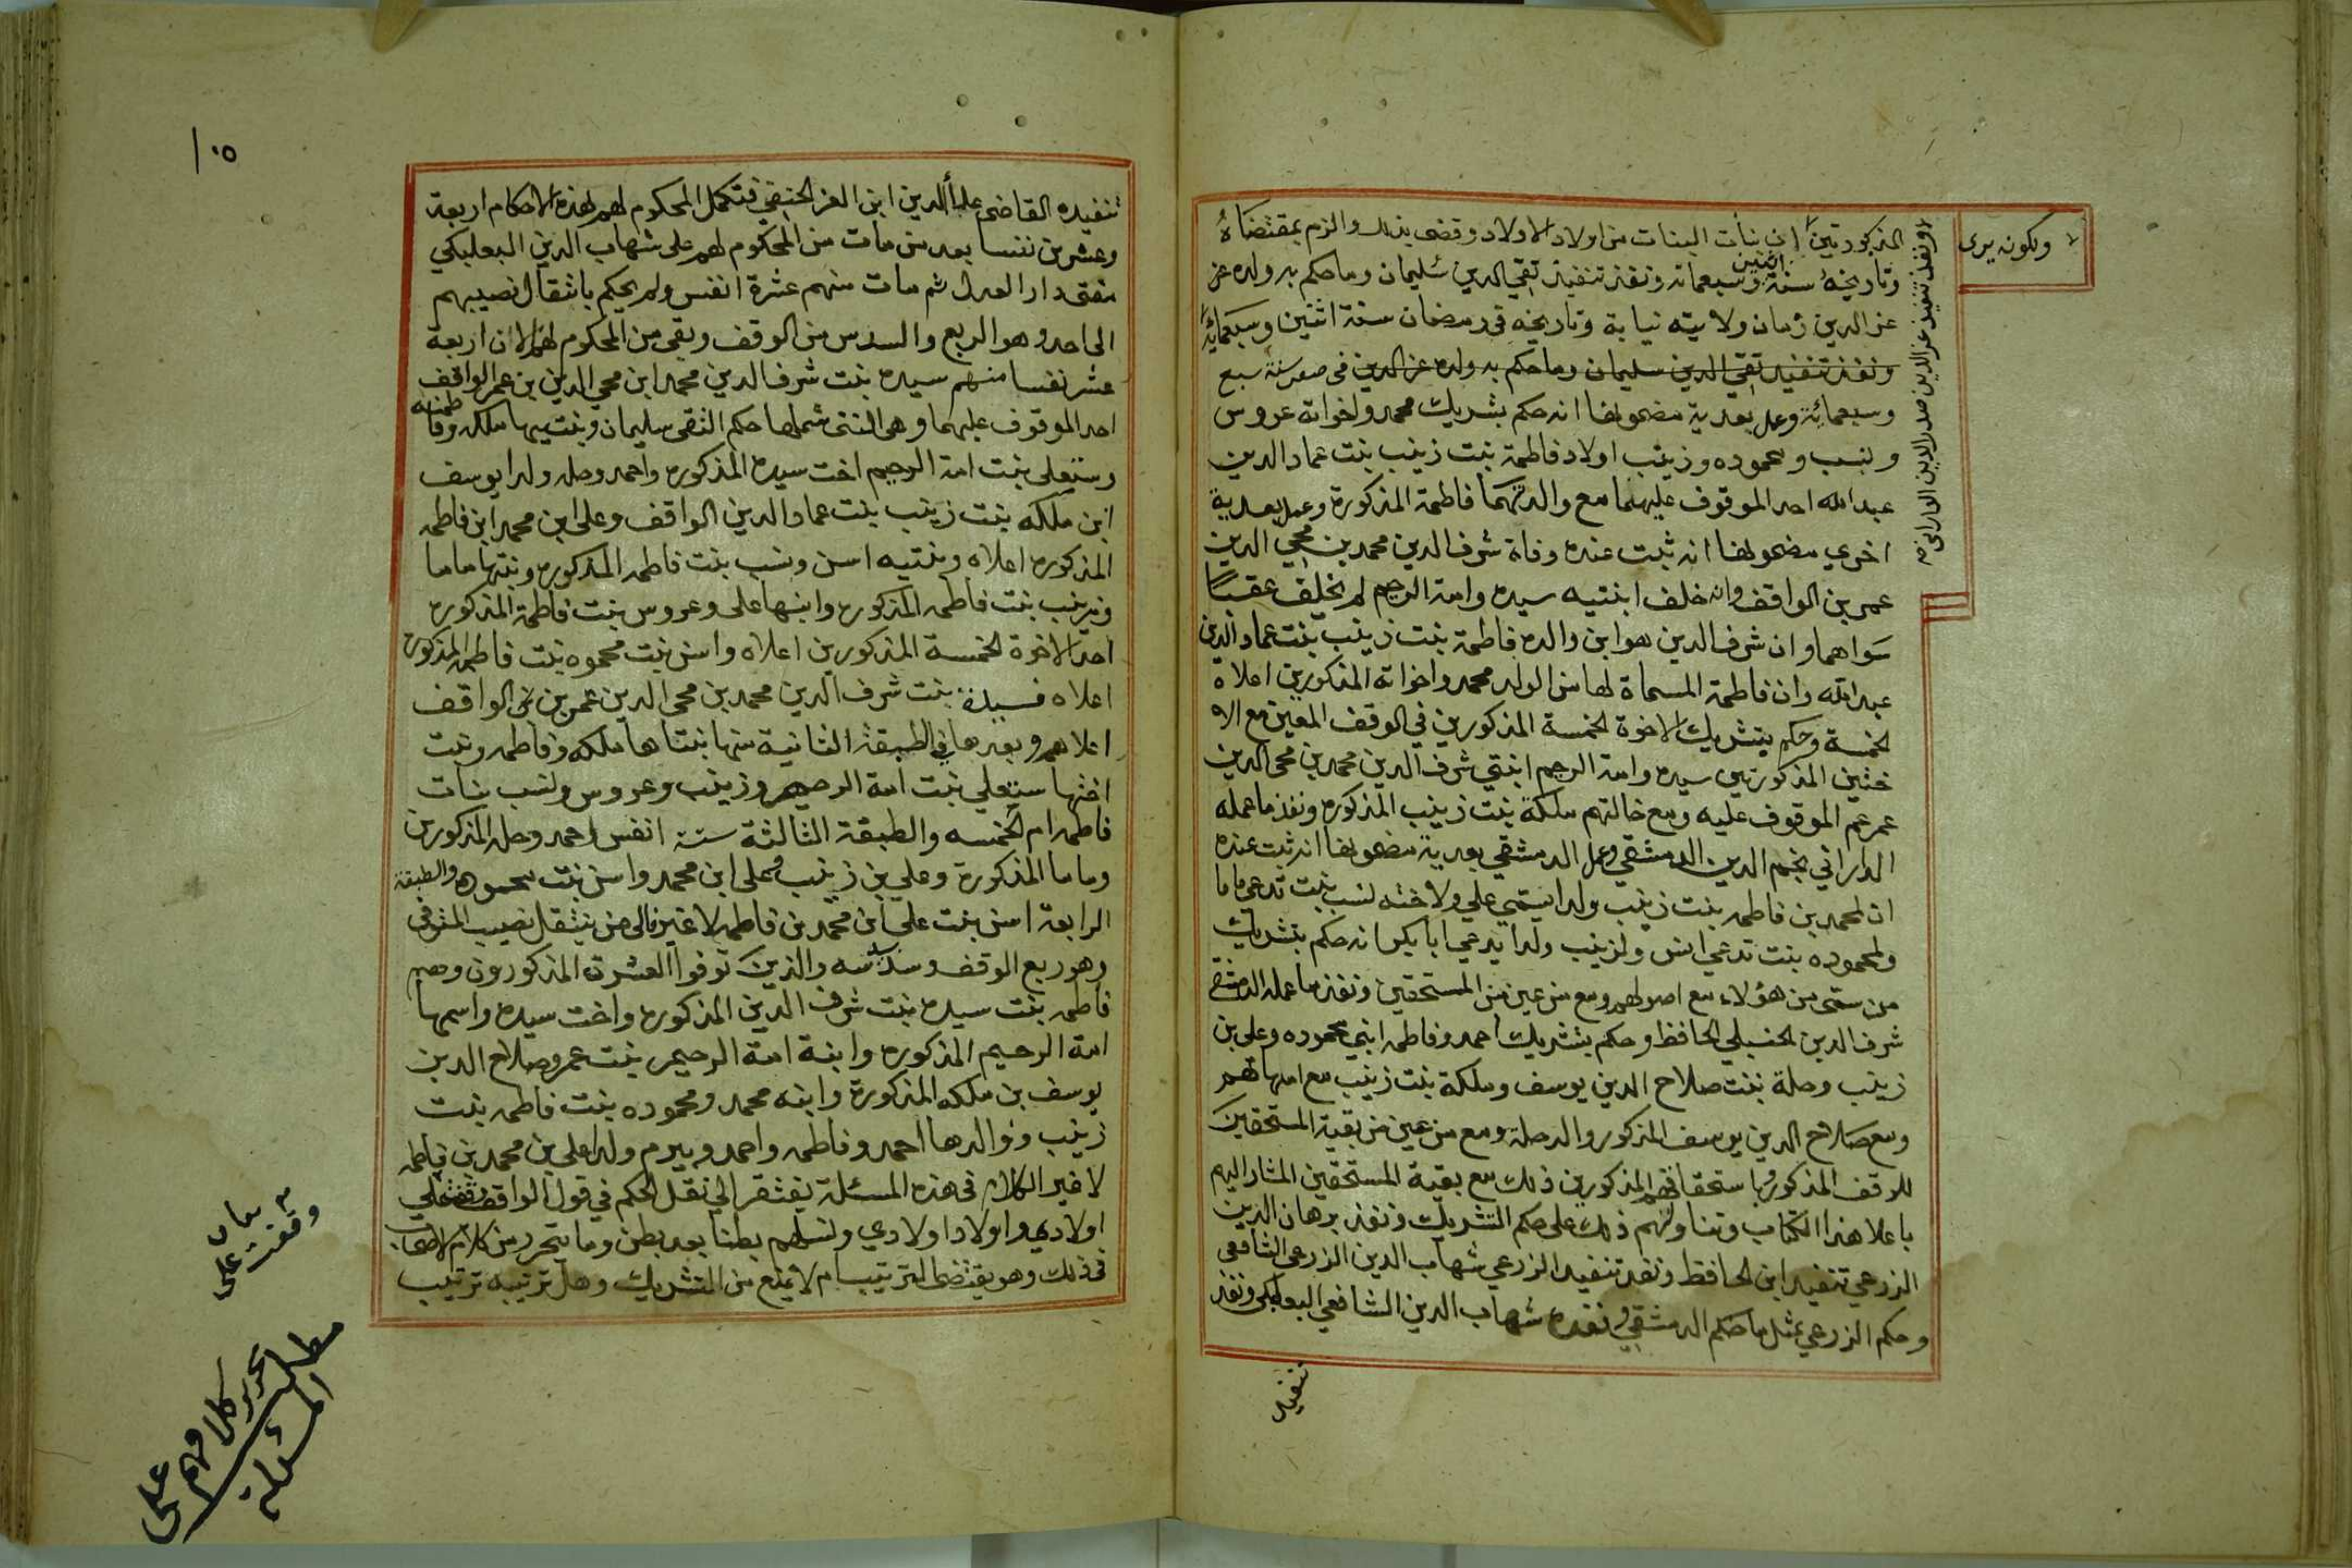 ولكونه يرى
المذكورتين ان بنات البنات من اولاد الاولاد وقضى بذلك والزم بمقتضاهُ
وتاريخهُ سنة اثنين وسبعمائة ونفذ تنفيذ تقي الدين سليمان وما حكم به ولده عز
عز الدين زمان ولايته نيابة وتاريخه في رمضان سنة اثنين وسبعمائة
ونفذ تنفيذ تقي الدين سليمان وما حكم به ولده عز الدين في صفر سنة سبع
وسبعمائة وعمل بعدية مضمونها انه حكم بتشريك محمد واخواته عروس
ونسب ومحموده وزينب اولاد فاطمة بنت زينب بنت عماد الدين
عبد الله احد الموقوف عليهما مع والدتهما فاطمة المذكورة وعمل بعدية
اخرى مضمونها انه ثبت عنده وفاة شرف الدين محمد بن محيي الدين
عمر بن الواقف وانه خلف ابنتيه سيده وامة الرحيم لم يخلف عقبًا
سواهما وان شرف الدين هو ابن والده فاطمة بنت زينب بنت عماد الدين
عبد الله وان فاطمة المسماة لها من الولد محمد واخواته المذكورين اعلاه
الخمسة وحكم بتشريك الاخوة الخمسة المذكورين في الوقف المعين مع الا
ختين المذكورتين سيده وامة الرحيم ابنتي شرف الدين محمد بن محي الدين
عمر عم الموقوف عليه ومع خالتهم ملكة بنت زينب المذكوره ونفذ ما عمله
الداراني نجم الدين الدمشقي وعمل الدمشقي بعدية مضمونها انه ثبت عنده
ان لمحمد بن فاطمه بنت زينب ولدا يسمي علي ولاخته نسب بنت تدعي ماما
ولمحموده بنت تدعي اسن ولزينب ولدا يدعي ابا بكر انه حكم بتشريك
من سمى من هؤلاء مع اصولهم ومع من عين من المستحقين ونفذ ما عمله الدمشقي
شرف الدين الحنبلي الحافظ وحكم بتشريك احمد وفاطمه ابني محموده وعلي بن
زينب وحلة بنت صلاح الدين يوسف وملكة بنت زينب مع امهاتهم
ومع صلاح الدين يوسف المذكور والد حلة ومع من عين من بقية المستحقين
للوقف المذكور وباستحقاقهم المذكورين ذلك مع بقية المستحقين المشار اليهم
باعلا هذا الكتاب وتناولهم ذلك على حكم التشريك ونفذ برهان الدين
الزرعي تنفيذ ابن الحافظ ونفذ تنفيذ الزرعي شهاب الدين الزرعي الشافعي
وحكم الزرعي بمثل ما حكم الدمشقي ونفذه شهاب الدين الشافعي البعلبكي ونفذ
تنفيذ
١٠٥
تنفيذه القاضي علاء الدين ابن العز الحنفي فتكمل المحكوم لهم بهذه الاحكام اربعة
وعشرين نفسا بعد من مات من المحكوم لهم على شهاب الدين البعلبكي
مفتي دار العدل ثم مات منهم عشرة انفس ولم يحكم بانتقال نصيبهم
الى احد وهو الربع والسدس من الوقف وبقى من المحكوم لهم الان اربعة
عشر نفسا منهم سيده بنت شرف الدين محمد ابن محيي الدين بن عمر الواقف
احد الموقوف عليهما وهي التى شملها حكم التقي سليمان وبنتيها ملكه وفاطمه
وستعلى بنت امة الرحيم اخت سيده المذكوره واحمد وحله ولدا يوسف
ابن ملكه بنت زينب بنت عماد الدين الواقف وعلي ابن محمد ابن فاطمه
المذكوره اعلاه وبنتيه اسن ونسب بنت فاطمه المذكوره وبنتها ماما
وزينب بنت فاطمه المذكوره وابنها على وعروس بنت فاطمة المذكوره
احد الاخوة الخمسة المذكورين اعلاه واسن بنت محموده بنت فاطمه المذكوره
اعلاه فسيدة بنت شرف الدين محمد بن محي الدين عمر بن الواقف
اعلاهم وبعدها في الطبقة الثانية منها بنتاها ملكه وفاطمه وبنت
اختها ستعلي بنت امة الرحيم وزينب وعروس ونسب بنات
فاطمه ام الخمسه والطبقة الثالثة ستة انفس احمد وحله المذكورين
وماما المذكورة وعلي بن زينب وعلي ابن محمد واسن بنت محموده والطبقة
الرابعة اسن بنت علي ابن محمد بن فاطمه لا غير فالى من ينتقل نصيب المتوفى
وهو ربع الوقف وسدسه والذين توفوا العشرة المذكورون وهم
فاطمه بنت سيده بنت شرف الدين المذكوره واخت سيده واسمها
امة الرحيم المذكوره وابنة امة الرحيم بنت عمر وصلاح الدين
يوسف بن ملكه المذكورة وابنه محمد ومحموده بنت فاطمه بنت
زينب ووالدها احمد وفاطمه واحمد وبيرم ولدا علي بن محمد بن فاطمه
لا غير الكلام في هذه المسئلة يفتقر الى نقل الحكم في قول الواقف وقفت علي
اولادي واولاد اولادي ونسلهم بطنا بعد بطن وما يتحرر من كلام الاصحاب
في ذلك وهو يقتضى الترتيب ام لا يمنع من التشريك وهل ترتيبه ترتيب
وقفت على
مطلب
تحرير كلامهم على
المسئلة